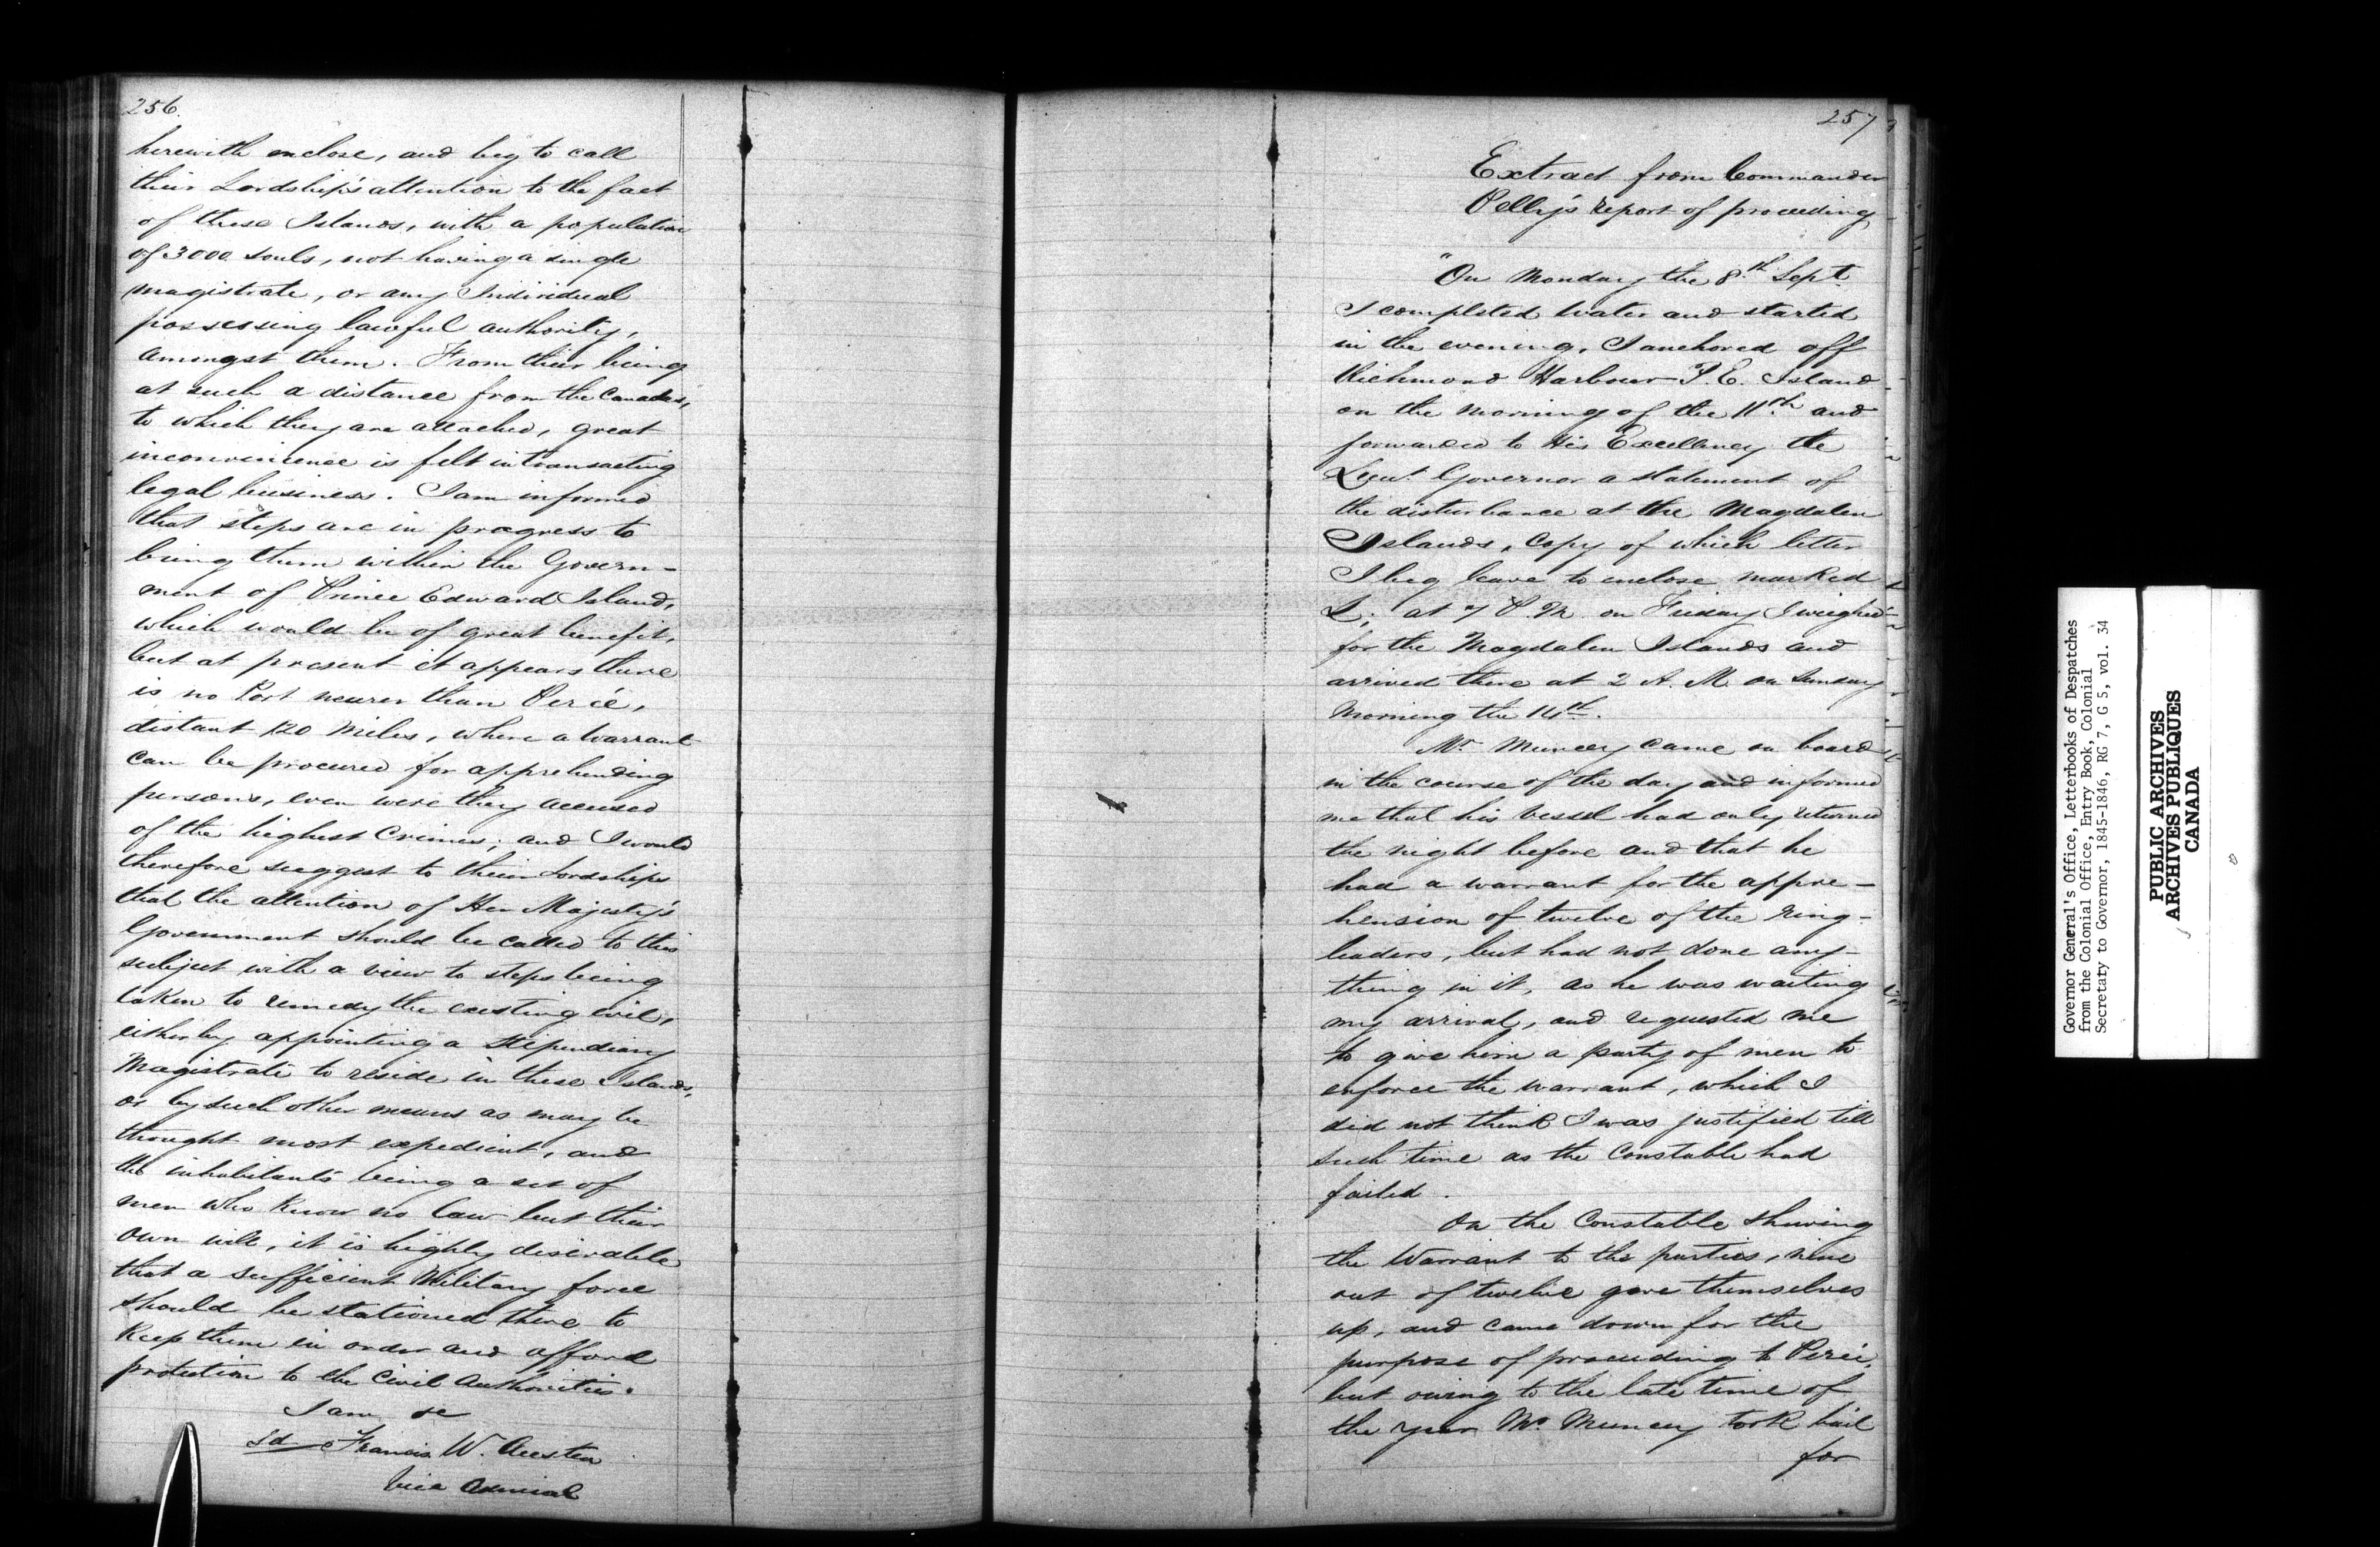 256.
herewith enclose, and beg to call
their Lordship's attention to the fact
of these Islands, with a population
of 3000 souls, not having a single
magistrate, or any Individual
possessing lawful authority,
amongst them. From their being
at such a distance from the Canadas,
to which they are attached, great
inconvenience is felt in transacting
legal business. I am informed
that steps are in progress to
bring them within the Govern-
ment of Prince Edward Island,
which would be of great benefit,
but at present it appears there
is no Port nearer than Percé,
distant 120 Miles, where a Warrant
can be procured for apprehending
persons, even were they accused
of the highest Crimes; and I would
therefore suggest to their Lordships
that the attention of Her Majesty's
Government should be called to this
subject with a view to steps being
taken to remedy the existing evil,
either by appointing a Stipendiary
Magistrate to reside in these Islands,
or by such other means as may be
thought most expedient, and
the inhabitants being a set of
men who Know no law but their
own will, it is highly desirable
that a sufficient Military force
should be stationed there to
Keep them in order and afford
protection to the Civil Authorities.
I am &c
sd Francis W. Austen
Vice Admiral
257
Extract from Commander
Pelly's report of proceeding
"On Monday the 8th Sept.
I completed Water and started
in the evening, I anchored off
Richmond Harbour P. E. Island
on the Morning of the 11th and
forwarded to His Excellency the
Lieut Governor a statement of
the disturbance at the Magdalen
Islands, Copy of which letter
I beg leave to enclose marked
L; at 7 P. M. on Friday I weighed
for the Magdalen Islands and
arrived there at 2 A. M. on Sunday
Morning the 14th.
Mr Muncey came on board
in the course of the day and informed
me that his Vessel had only returned
the night before and that he
had a warrant for the appre-
hension of twelve of the ring-
leaders, but had not done any-
thing in it, as he was waiting
my arrival, and requested me
to give him a party of men to
enforce the warrant, which I
did not think I was justified till
such time as the Constable had
failed.
On the Constable shewing
the Warrant to the parties, nine
out of twelve gave themselves
up, and came down for the
purpose of proceeding to Percé,
but owing to the late time of
the year Mr Muncey took bail
for
Governor General's Office, Letterbooks of Despatches
from the Colonial Office, Entry Book, Colonial
Secretary to Governor, 1845-1846, RG 7, G 5, vol. 34
PUBLIC ARCHIVES
ARCHIVES PUBLIQUES
CANADA